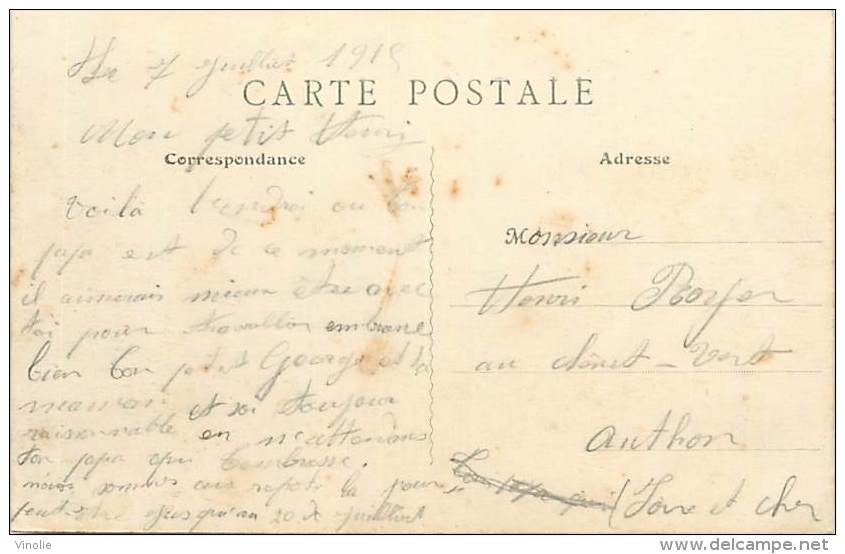 Le 7 Juillet 1915
CARTE POSTALE
Mon petit Henri
Correspondance
Adresse
Voilà l'endroi ou ton
papa est de ce moment
il aimerais mieux être avec
toi pour travallier embrasse
bien ton petit George et ta
maman et soi toujour
raisonnable en m'attendans
ton papa qui t'embrasse.
nous sommes au repos la pour
peut être jusqu'au 20 de juillet
Monsieur
Henri Royer
au chênet-Vert
Authon
(Loire et Cher